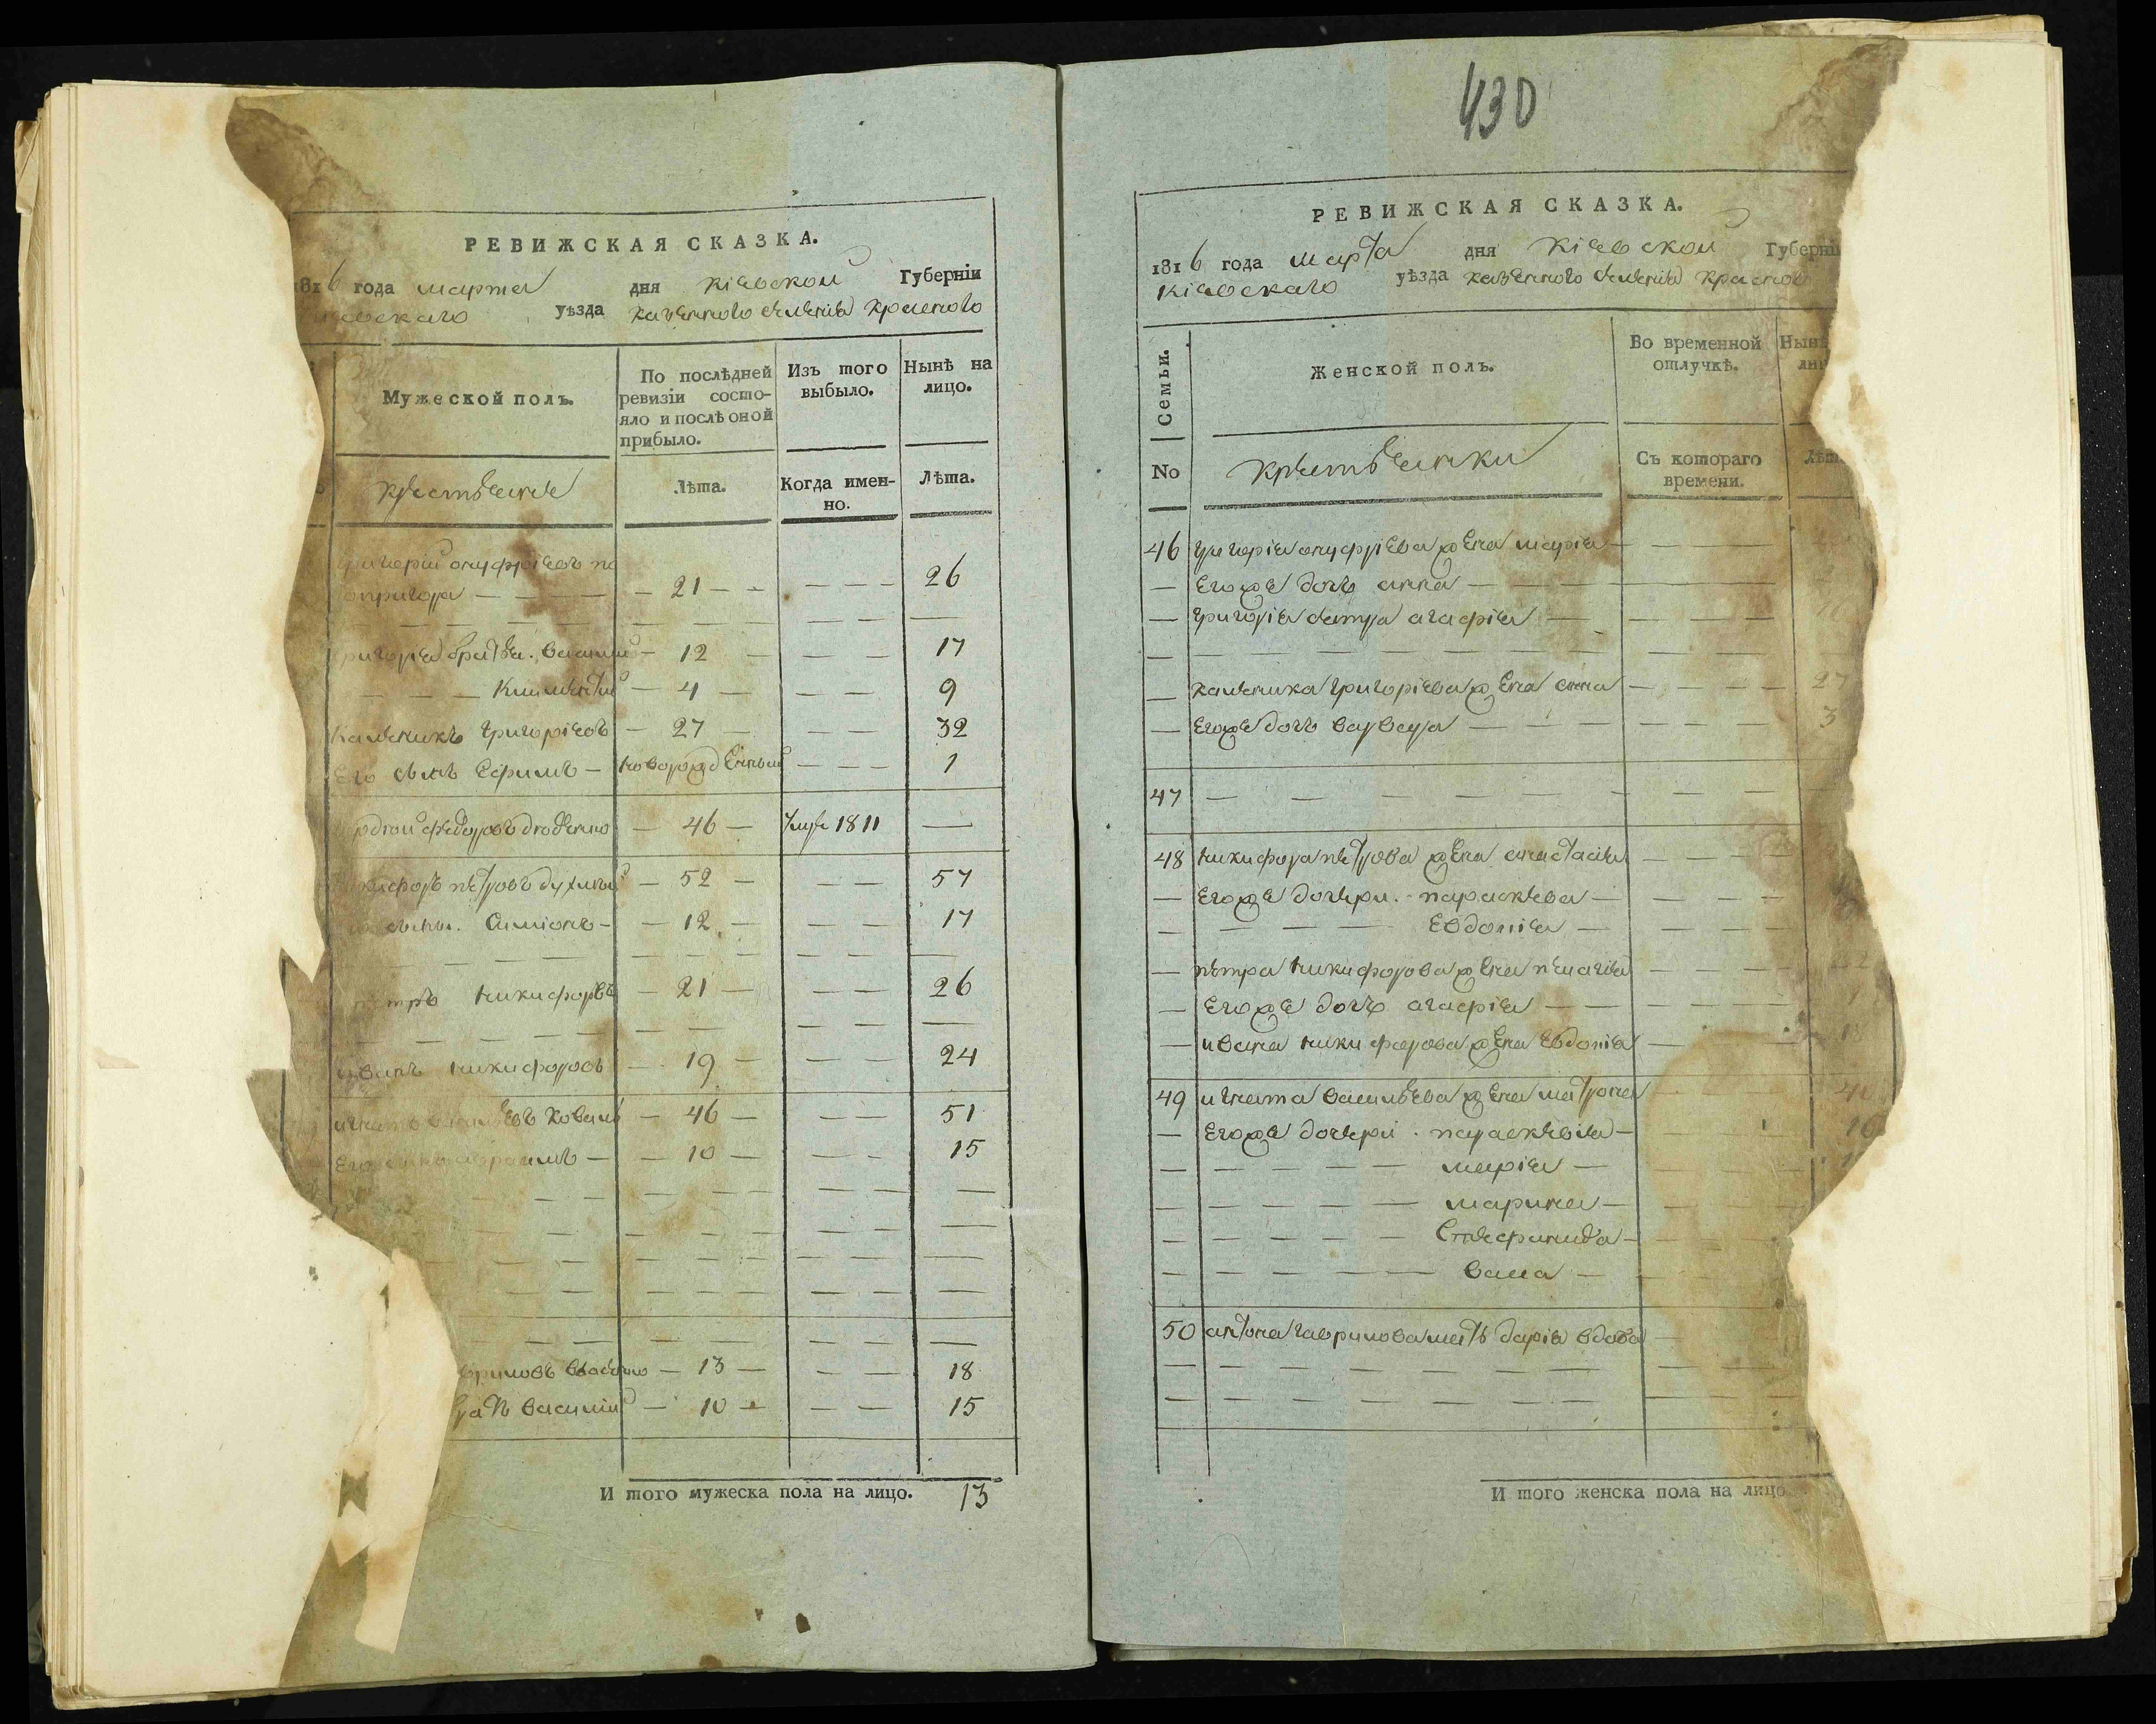 РЕВИЖСКАЯ СКАЗКА.
1816 года марта дня Кіевской Губерніи
уѣзда казенного селенія Красного
Мужеской полъ.
По послѣдней ревизіи состо-
яло и послѣ оной
прибыло.
Изъ того
выбыло.
Нынѣ на
лицо.
крестьяне
Лѣта.
Когда имен-
но.
Лѣта.
григорій онуфріевъ
21 26
григорія братья. василий 12 17
Климентій 4 9
Калѣникъ григоріевъ 27 32
Его сынъ Ефимъ новорожденный 1
федоровъ 46 Умре 1811
петровъ 52 57
сыны. Симіонъ 12 17
петръ никифоровъ 21 26
иванъ никифоровъ 19 24
игнатъ васильевъ коваль 46 51
10 15
13 18
братъ василий 10 15
И того мужеска пола на лицо. 13
430
РЕВИЖСКАЯ СКАЗКА.
1816 года марта дня Кіевской Губерніи
Кіевскаго уѣзда казенного селенія Красного
Семьи.
Женской полъ.
Во временной
отлучкѣ.
Нынѣ
No
крестьянки
Съ котораго
времени.
Лѣта
46 григорія онуфріева жена марія
Его же дочь анна
григорія сестра агафія
калѣника григоріева жена анна 27
Его же дочь варвара 3
47
48 никифора петрова жена анастасія
Его же дочери. параскева
Евдокія
петра никифорова жена пелагія
Его же дочь агафія
ивана никифорова жена Евдокія
49 игната васильева жена матрона
Его же дочери. параскевія
марія
марина
Стефанида
васса
50 антона гаврилова мать дарія вдова
И того женска пола на лицо